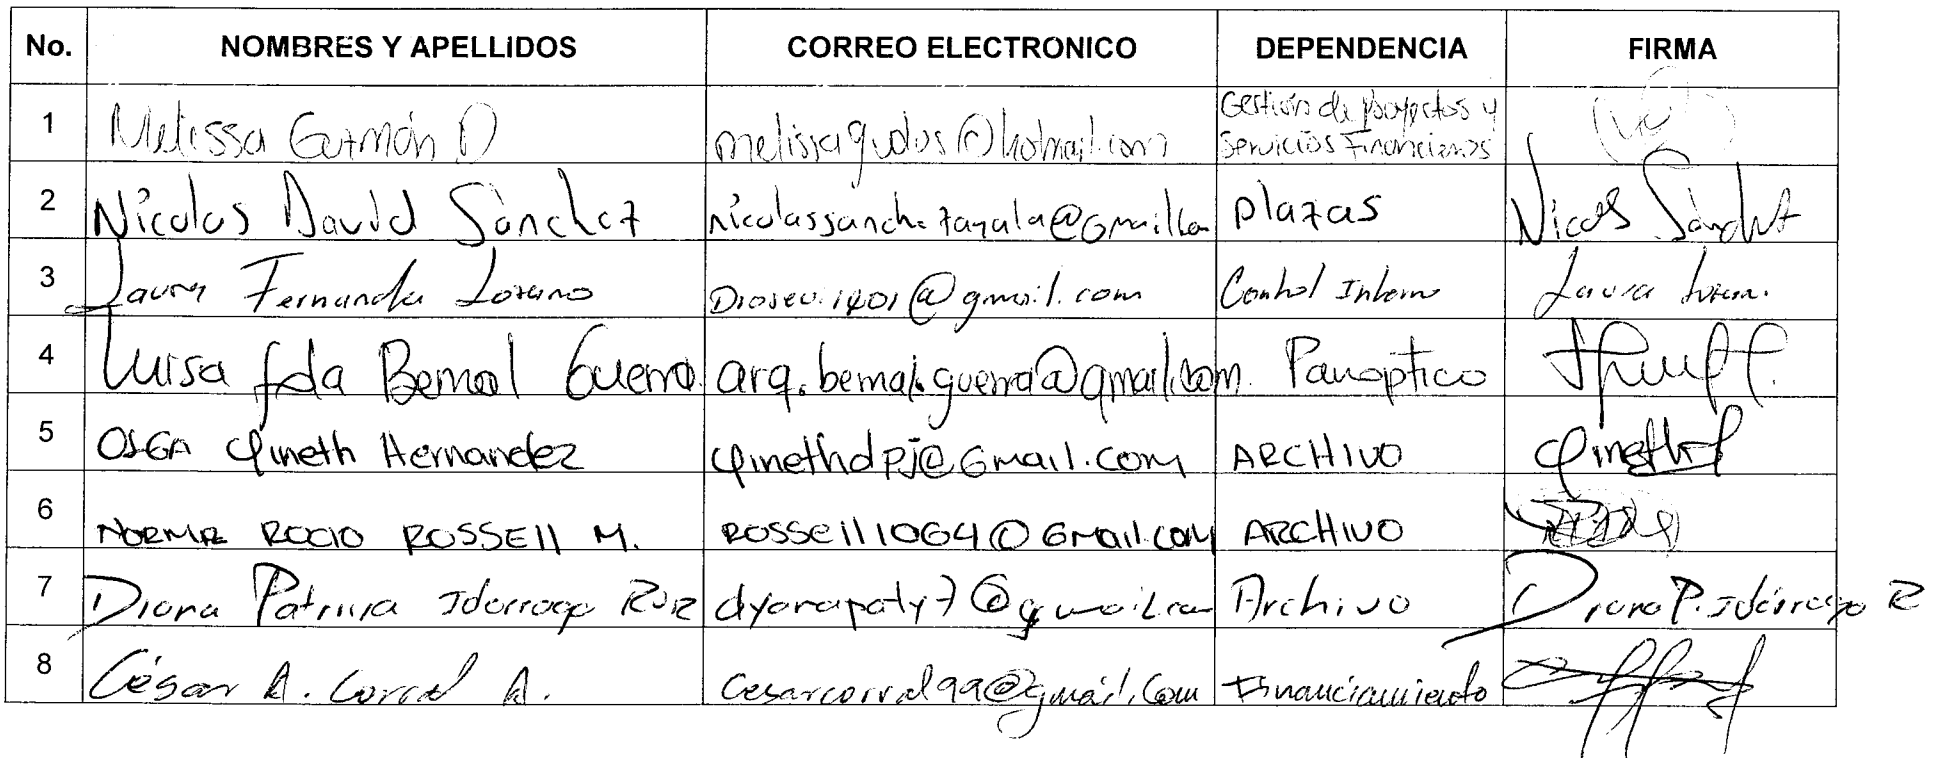 No. NOMBRES Y APELLIDOS CORREO ELECTRONICO DEPENDENCIA FIRMA
1 Melissa Guzmán D melissagudus@hotmail.com Gestión de proyectos y
Servicios Financieros
2 Nicolas David Sánchez nicolassanchezayala@Gmail.com plazas Nicolas Sánchez
3 Laura Fernanda Lozano @gmail.com Control Interno Laura Lozano.
4 Luisa fda Bernal Guerra arq.bernal.guerra@gmail.com. Panoptico
5 OLGA Yineth Hernandez Yinethdpj@Gmail.com ARCHIVO Yineth
6 NORMA ROCIO ROSSEll M. ROSSEll1064@Gmail.com ARCHIVO
7 Diana Patricia Idarraga Ruiz dyanapaty7@gmail.com Archivo Diana P. Idárraga R
8 César A. Corral A. Cesarcorral99@gmail.Com Financiamiento